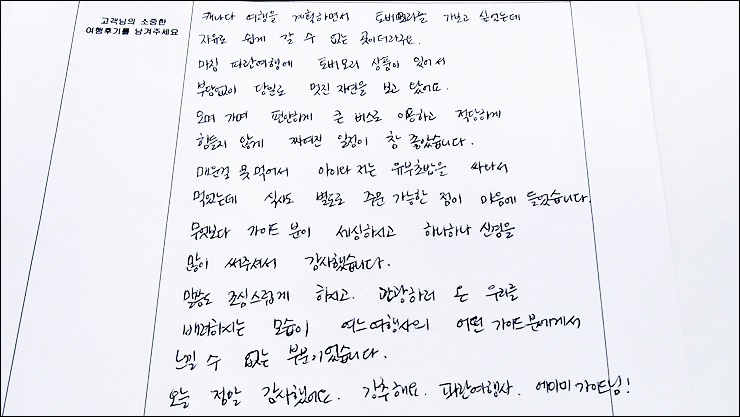 고객님의 소중한
여행후기를 남겨주세요
캐나다 여행을 계획하면서 토버모리를 가보고 싶었는데
자유로 쉽게 갈 수 없는 곳이더라구요.
마침 파란여행에 토버모리 상품이 있어서
부담없이 당일로 멋진 자연을 보고 왔어요.
오며 가며 편안하게 큰 버스로 이동하고 적당하게
힘들지 않게 짜여진 일정이 참 좋았습니다.
매운걸 못 먹어서 아이와 저는 유부초밥을 싸와서
먹었는데 식사도 별도로 주문 가능한 점이 마음에 들었습니다.
무엇보다 가이드 분이 세심하시고 하나하나 신경을
많이 써주셔서 감사했습니다.
말씀도 조심스럽게 하시고. 관광하러 온 우리를
배려하시는 모습이 여느여행사의 어떤 가이드분에게서
느낄 수 없는 부분이었습니다.
오늘 정말 감사했어요. 강추해요. 파란여행사. 에이미 가이드님!